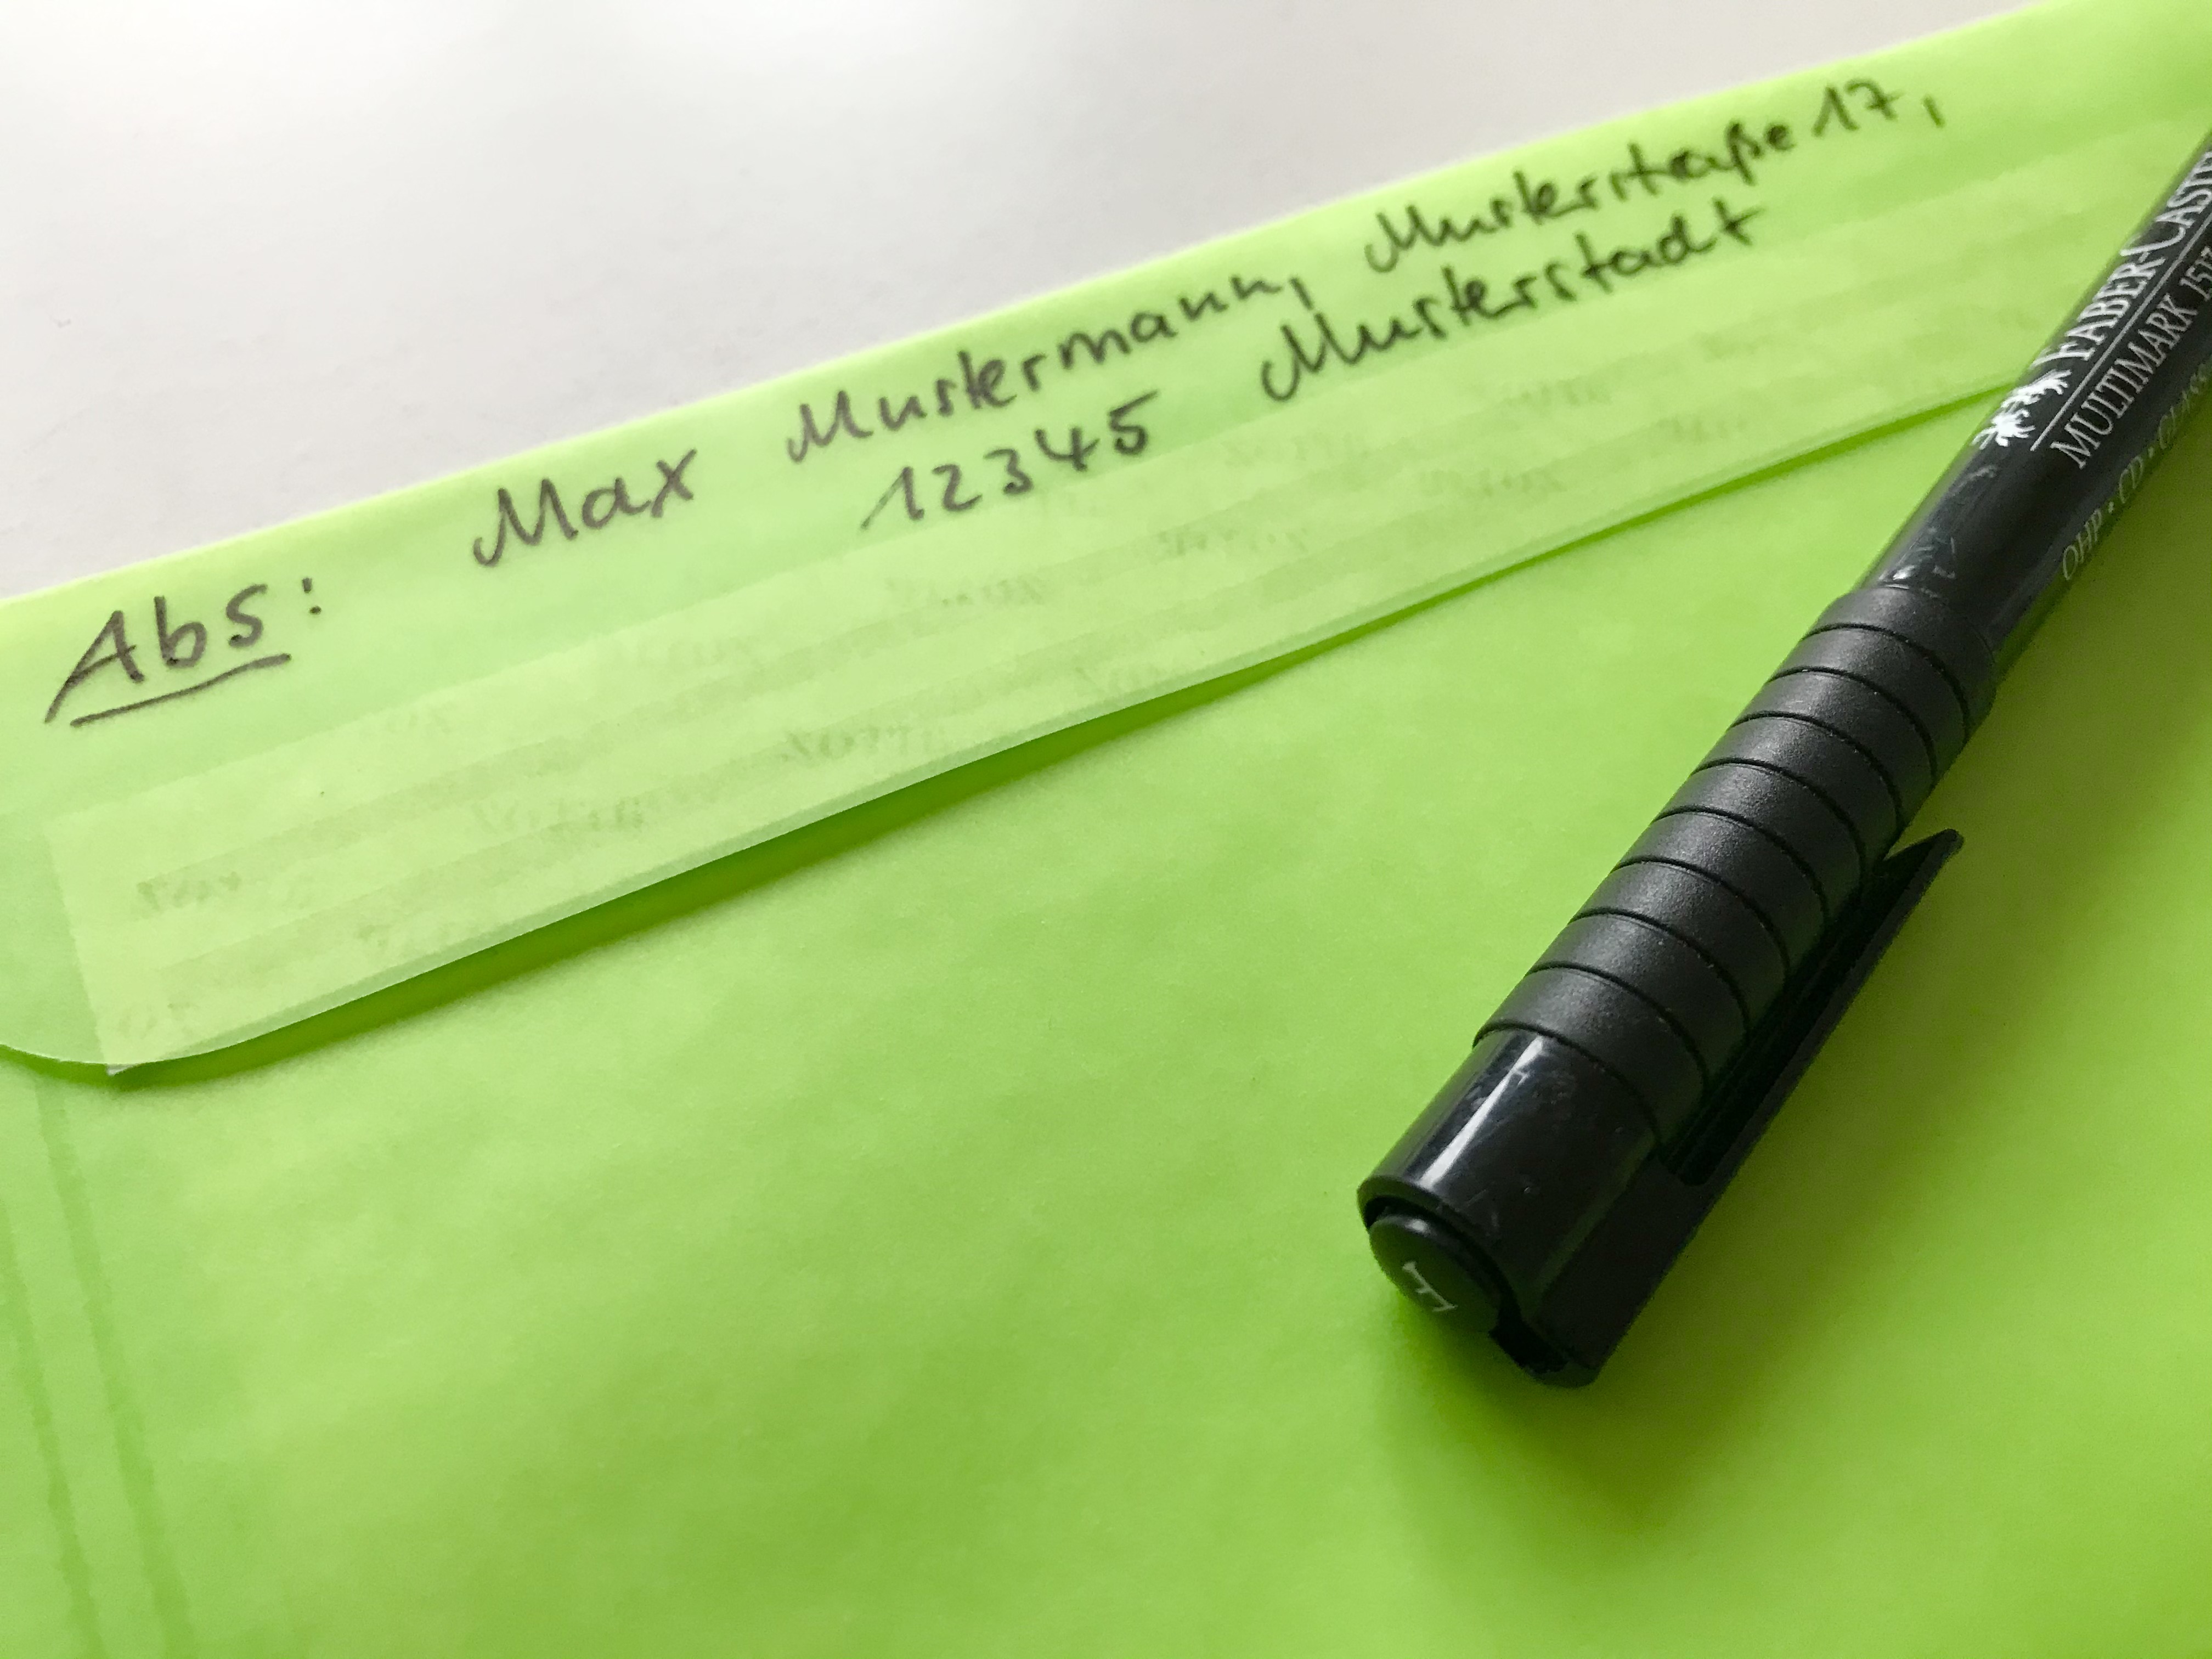 Abs: Max Mustermann, Musterstraße 17,
12345 Musterstadt
FABER-CASTE
MULTIMARK 151
OHP • CD • GLASS
F